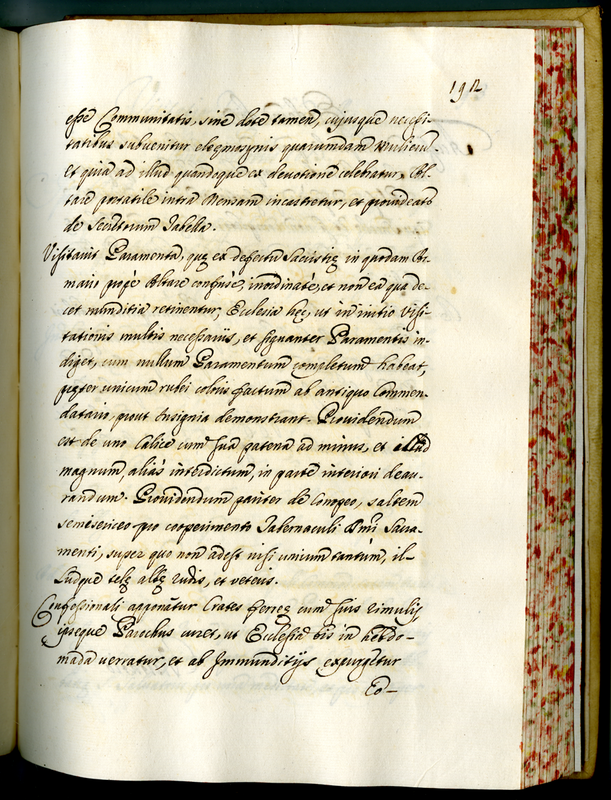 192
esse Communitatis, sine dote tamen, cujusque necessi-
tatibus subvenitur eleemosynis quarumdam Mulierum.
Et quia ad illud quandoque ex devotione celebratur, Al-
tare portatile intra Mensam incastretur, et provideatur
de Secretorum Tabella.
Visitavit Paramenta, quę ex defectu Sacristię in quodam Ar-
mario propè Altare confusè, inordinatè, et non ea qua de-
cet munditia retinentur, Ecclesia hęc, ut in initio Visi-
tationis multis necessariis, et signanter Paramentis in-
diget, cum nullum Paramentum completum habeat,
pręter unicum rubei coloris factum ab antiquo Commen-
datario, prout Insignia demonstrant. Providendum
est de uno Calice cum sua patena ad minus, et illud
magnum, aliàs interdictum, in parte interiori deau-
randum. Providendum pariter de Conopeo, saltem
semisericeo pro cooperimento Tabernaculi Smi Sacra-
menti, super quo non adest nisi unicum tantùm, il-
ludque telę albę rudis, et veteris.
Confessionali apponãtur Crates ferreę cum suis rimulis,
ipseque Parochus curet, ut Ecclesia bis in hebdo-
mada verratur, et ab Immunditijs expurgetur
Eo-